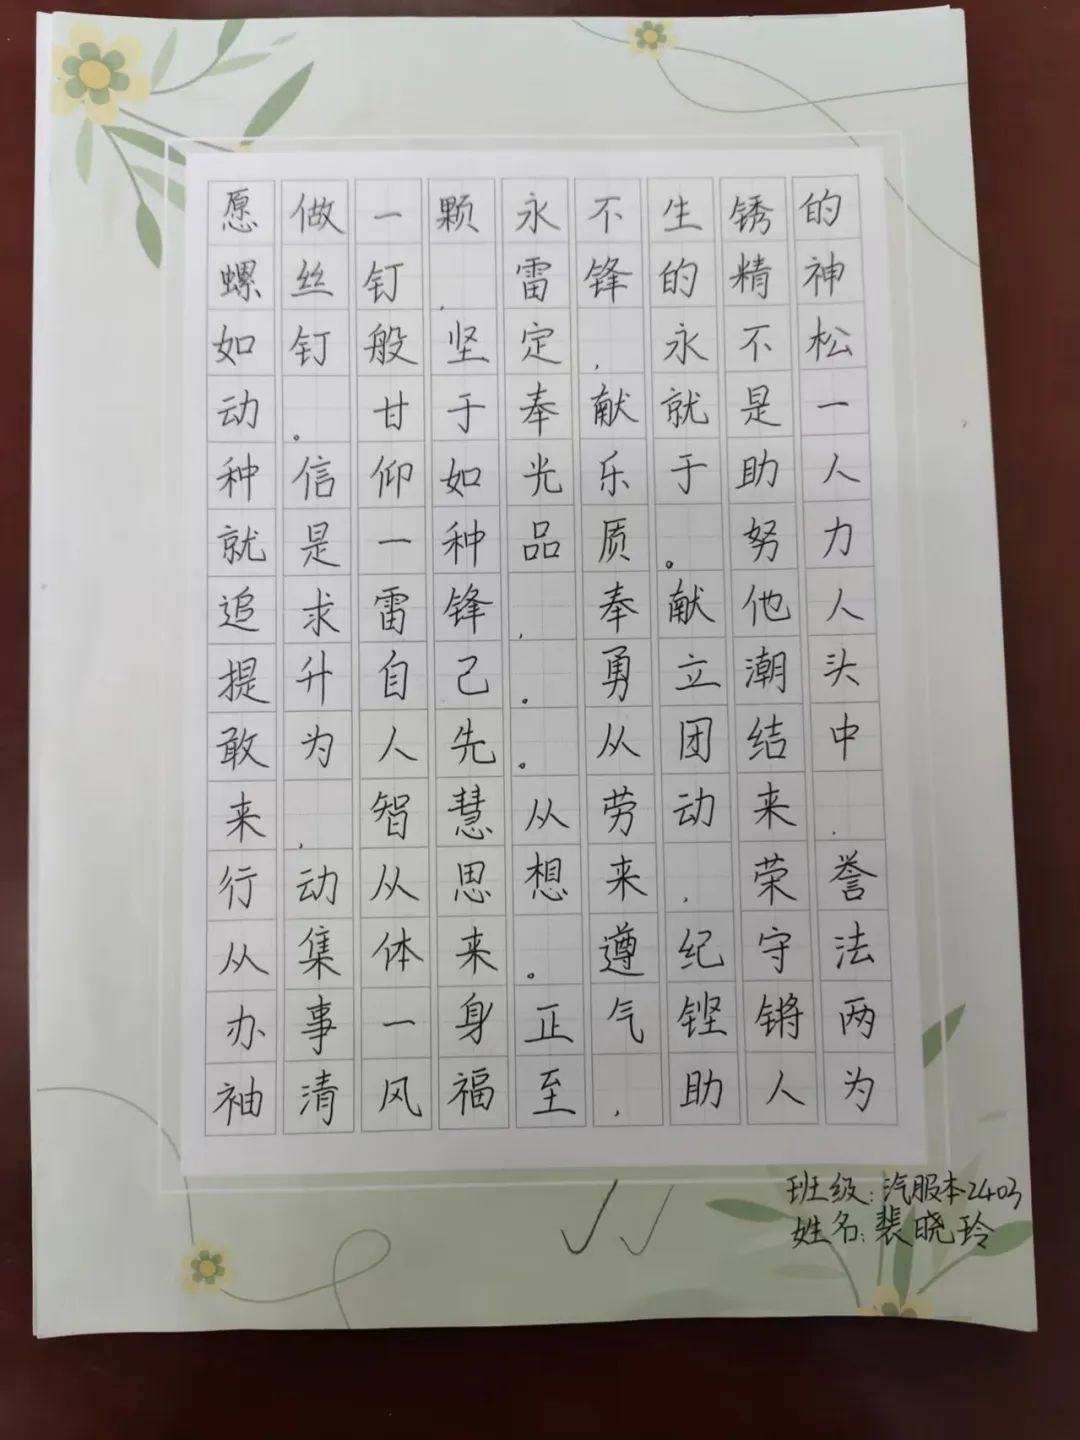 愿做一颗永不生锈的
螺丝钉，雷锋的精神
如钉般坚定，永不松
动。甘于奉献就是一
种信仰如光乐于助人
就是一种品质。努力
追求雷锋，奉献他人
提升自己。勇立潮头
敢为人先。从团结中
来，智慧从劳动来，
行动从思想来，荣誉
从集体来。遵纪守法
办事一身正气铿锵两
袖清风福至，助人为
班级：汽服本2403
姓名：裴晓玲